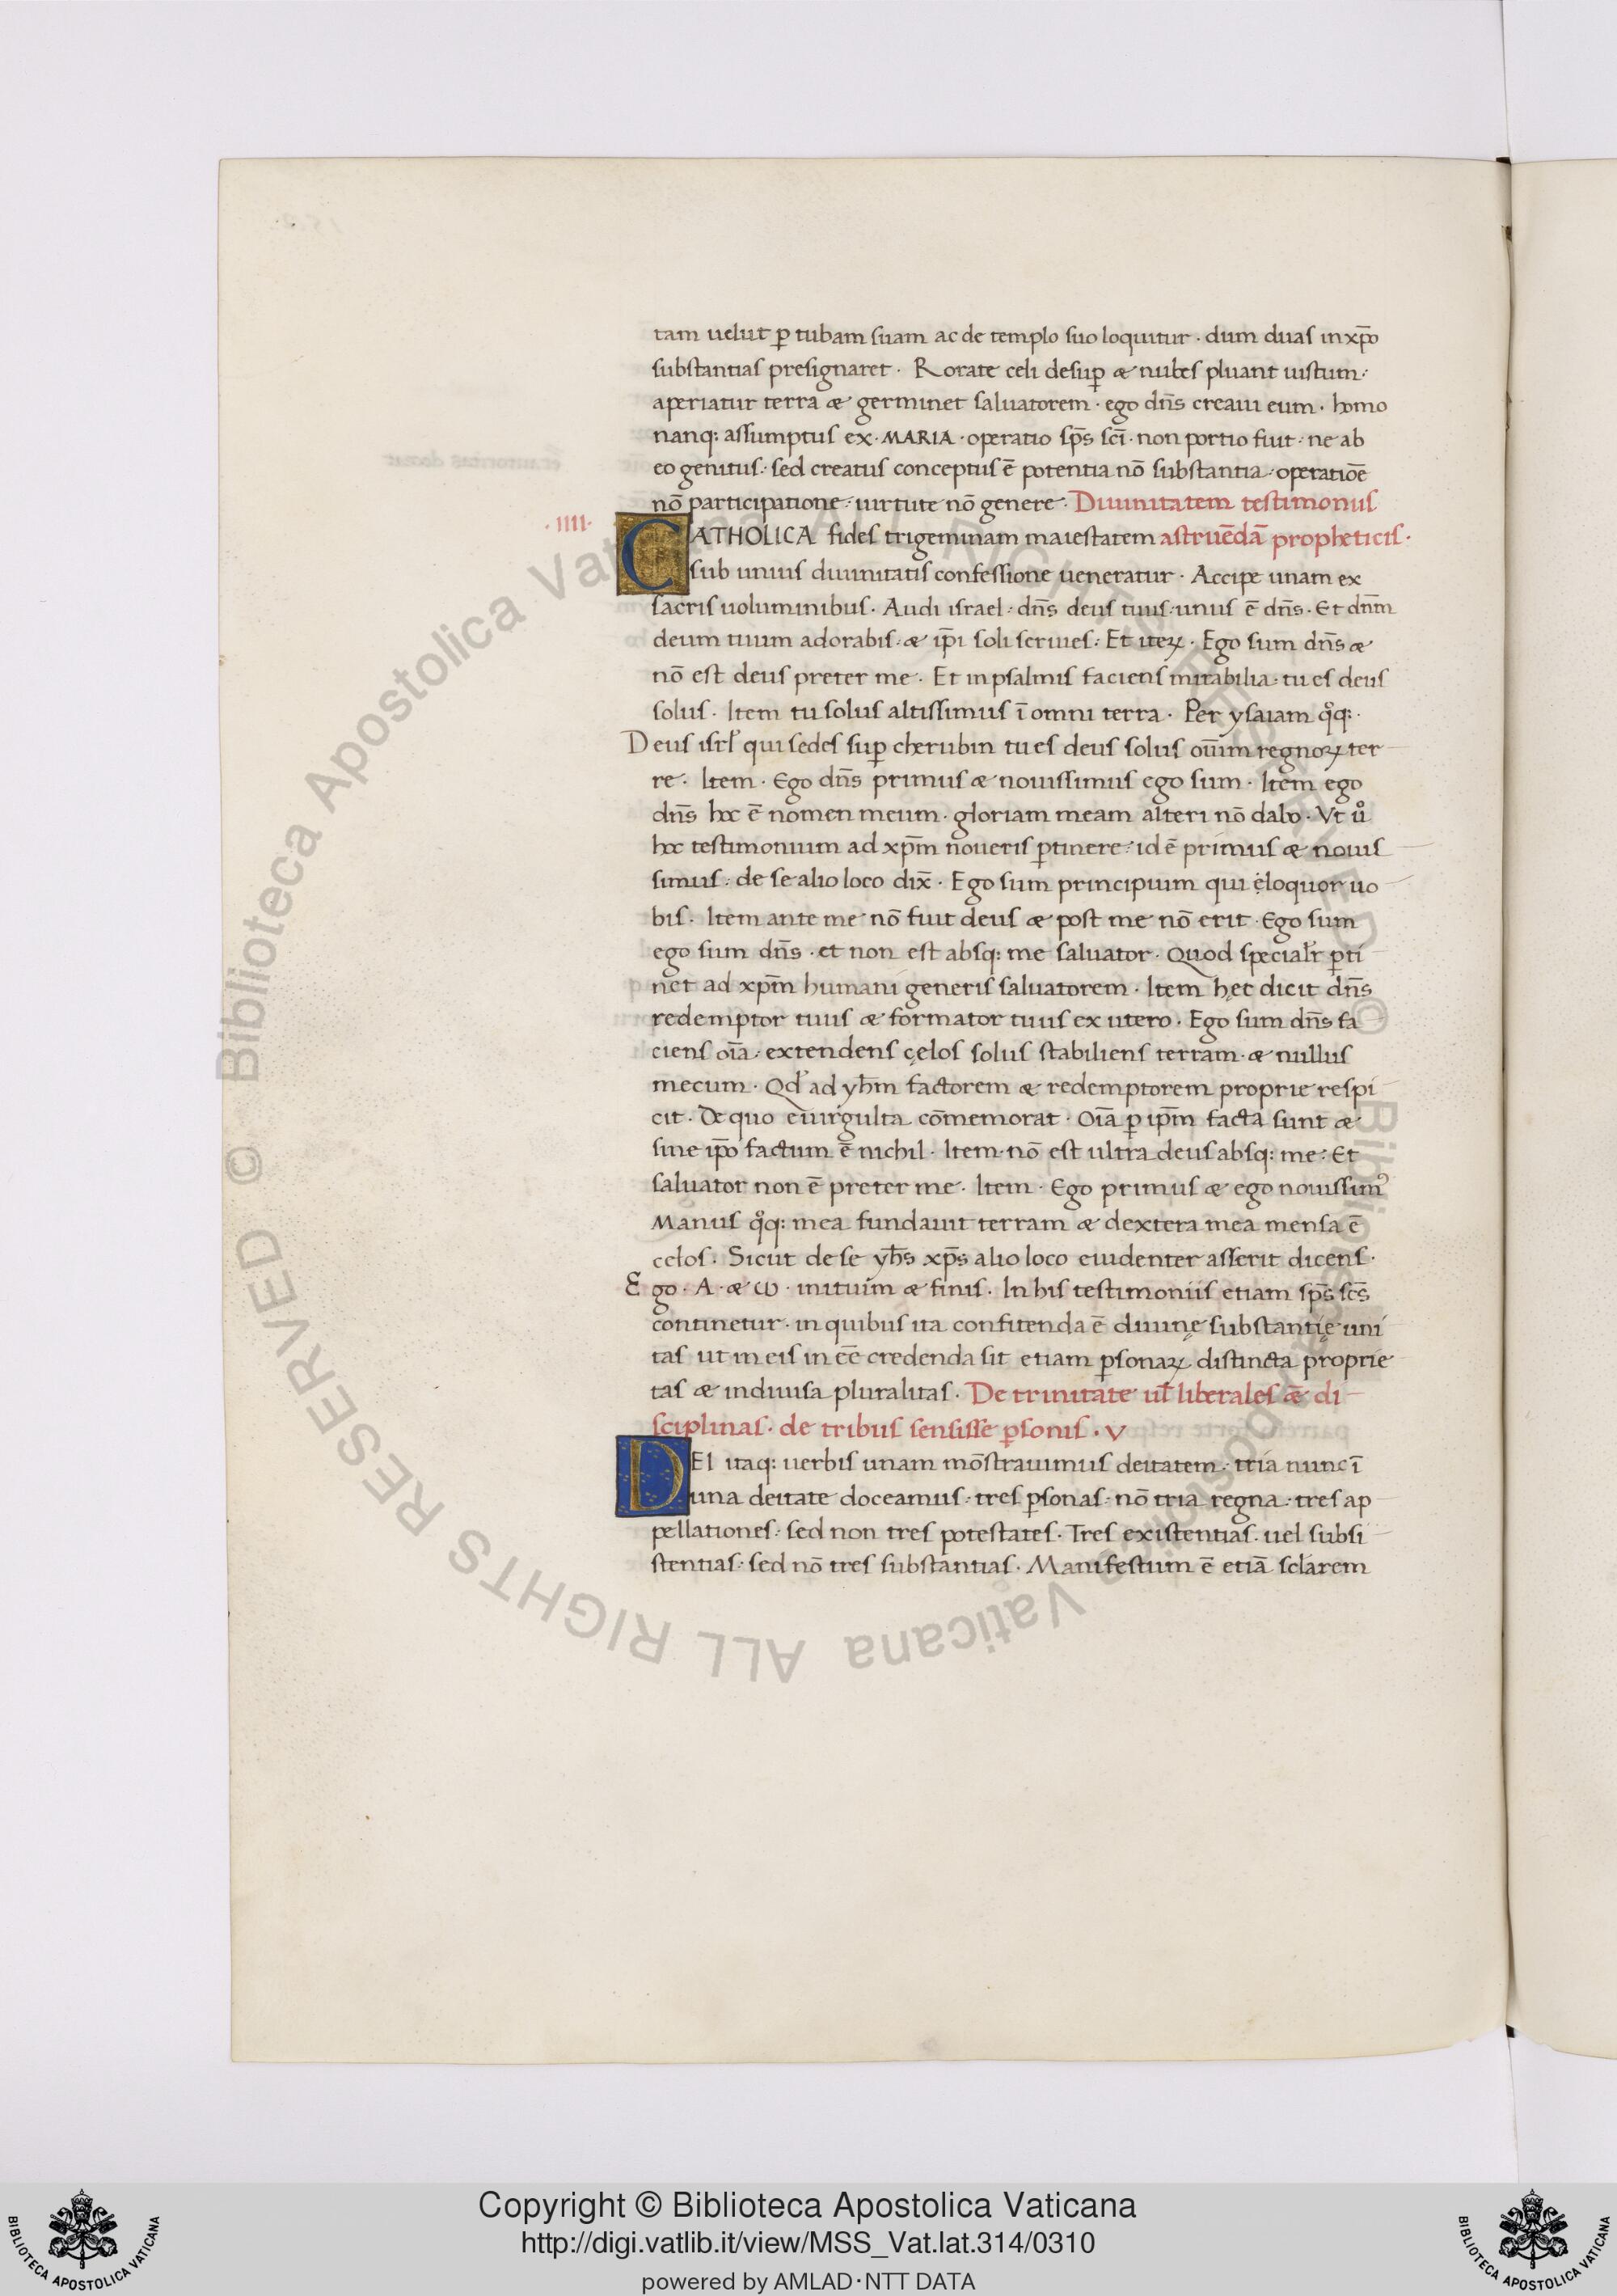 tam uelut ꝑ tubam suam ac de templo suo loquitur · dum duas in xp̄o
substantias presignaret · Rorate celi desuꝑ & nubes pluant iustum ·
aperiatur terra & germinet saluatorem · ego dn̄s creaui eum · homo
nanq: assumptus ex · MARIA · operatio sp̄s sc̄i · non portio fuit · ne ab
eo genitus · sed creatus conceptus ē potentia nō substantia · operatiōe
nō participatione · uirtute nō genere · Diuinitatem testimoniis
· IIII · CATHOLICA fides trigeminam maiestatem astruēdā propheticis ·
sub unius diuinitatis confessione ueneratur · Accipe unam ex
sacris uoluminibus · Audi israel · dn̄s deus tuus unus ē dn̄s · Et dn̄m
deum tuum adorabis · & ip̄i soli seruies · Et iteꝝ · Ego sum dn̄s &
nō est deus preter me · Et in psalmis faciens mirabilia · tu es deus
solus · Item tu solus altissimus ī omni terra · Per ysaiam qͦq: ·
Deus isrl̓ qui sedes suꝑ cherubin tu es deus solus oīum regnoꝝ ter
re · Item · Ego dn̄s primus & nouissimus ego sum · Item ego
dn̄s hoc ē nomen meum · gloriam meam alteri nō dabo · Vt uͦ
hoc testimonium ad xp̄m noueris ꝑtinere · id ē primus & nouis
simus · de se alio loco dix̄ · Ego sum principium qui eloquor uo
bis · Item ante me nō fuit deus & post me nō erit · Ego sum
ego sum dn̄s · et non est absq: me saluator · Quod specialr̓ ꝑti
net ad xp̄m humani generis saluatorem · Item hęc dicit dn̄s
redemptor tuus & formator tuus ex utero · Ego sum dn̄s fa
ciens oīa · extendens cęlos solus stabiliens terram · & nullus
mecum · Qd̓ ad yh̄m factorem & redemptorem proprie respi
cit · De quo euirgulta cōmemorat · Oīa ꝑ ip̄m facta sunt &
sine ip̄o factum ē nichil · Item · nō est ultra deus absq: me · Et
saluator non ē preter me · Item · Ego primus & ego nouissimꝰ
Manus qͦq: mea fundauit terram & dextera mea mensa ē
celos · Sicut de se yh̄s xp̄s alio loco euidenter asserit dicens ·
Ego · A · & ω · initium & finis · In his testimoniis etiam sp̄s sc̄s
continetur · in quibus ita confitenda ē diuinę substantię uni
tas ut in eis in eē credenda sit etiam ꝑsonaꝝ distincta proprie
tas & indiuisa pluralitas · De trinitate ul̄ liberales & di
sciplinas · de tribus sensisse ꝑsonis · V
DEI itaq: uerbis unam mōstrauimus deitatem · tria nunc ī
una deitate doceamus · tres ꝑsonas · nō tria regna · tres ap
pellationes · sed non tres potestates · Tres existentias · uel subsi
stentias · sed nō tres substantias · Manifestum ē etiā sclarem
© Biblioteca Apostolica Vaticana ALL RIGHTS RESERVED
Copyright © Biblioteca Apostolica Vaticana
http://digi.vatlib.it/view/MSS_Vat.lat.314/0310
powered by AMLAD·NTT DATA
BIBLIOTECA APOSTOLICA VATICANA
BIBLIOTECA APOSTOLICA VATICANA